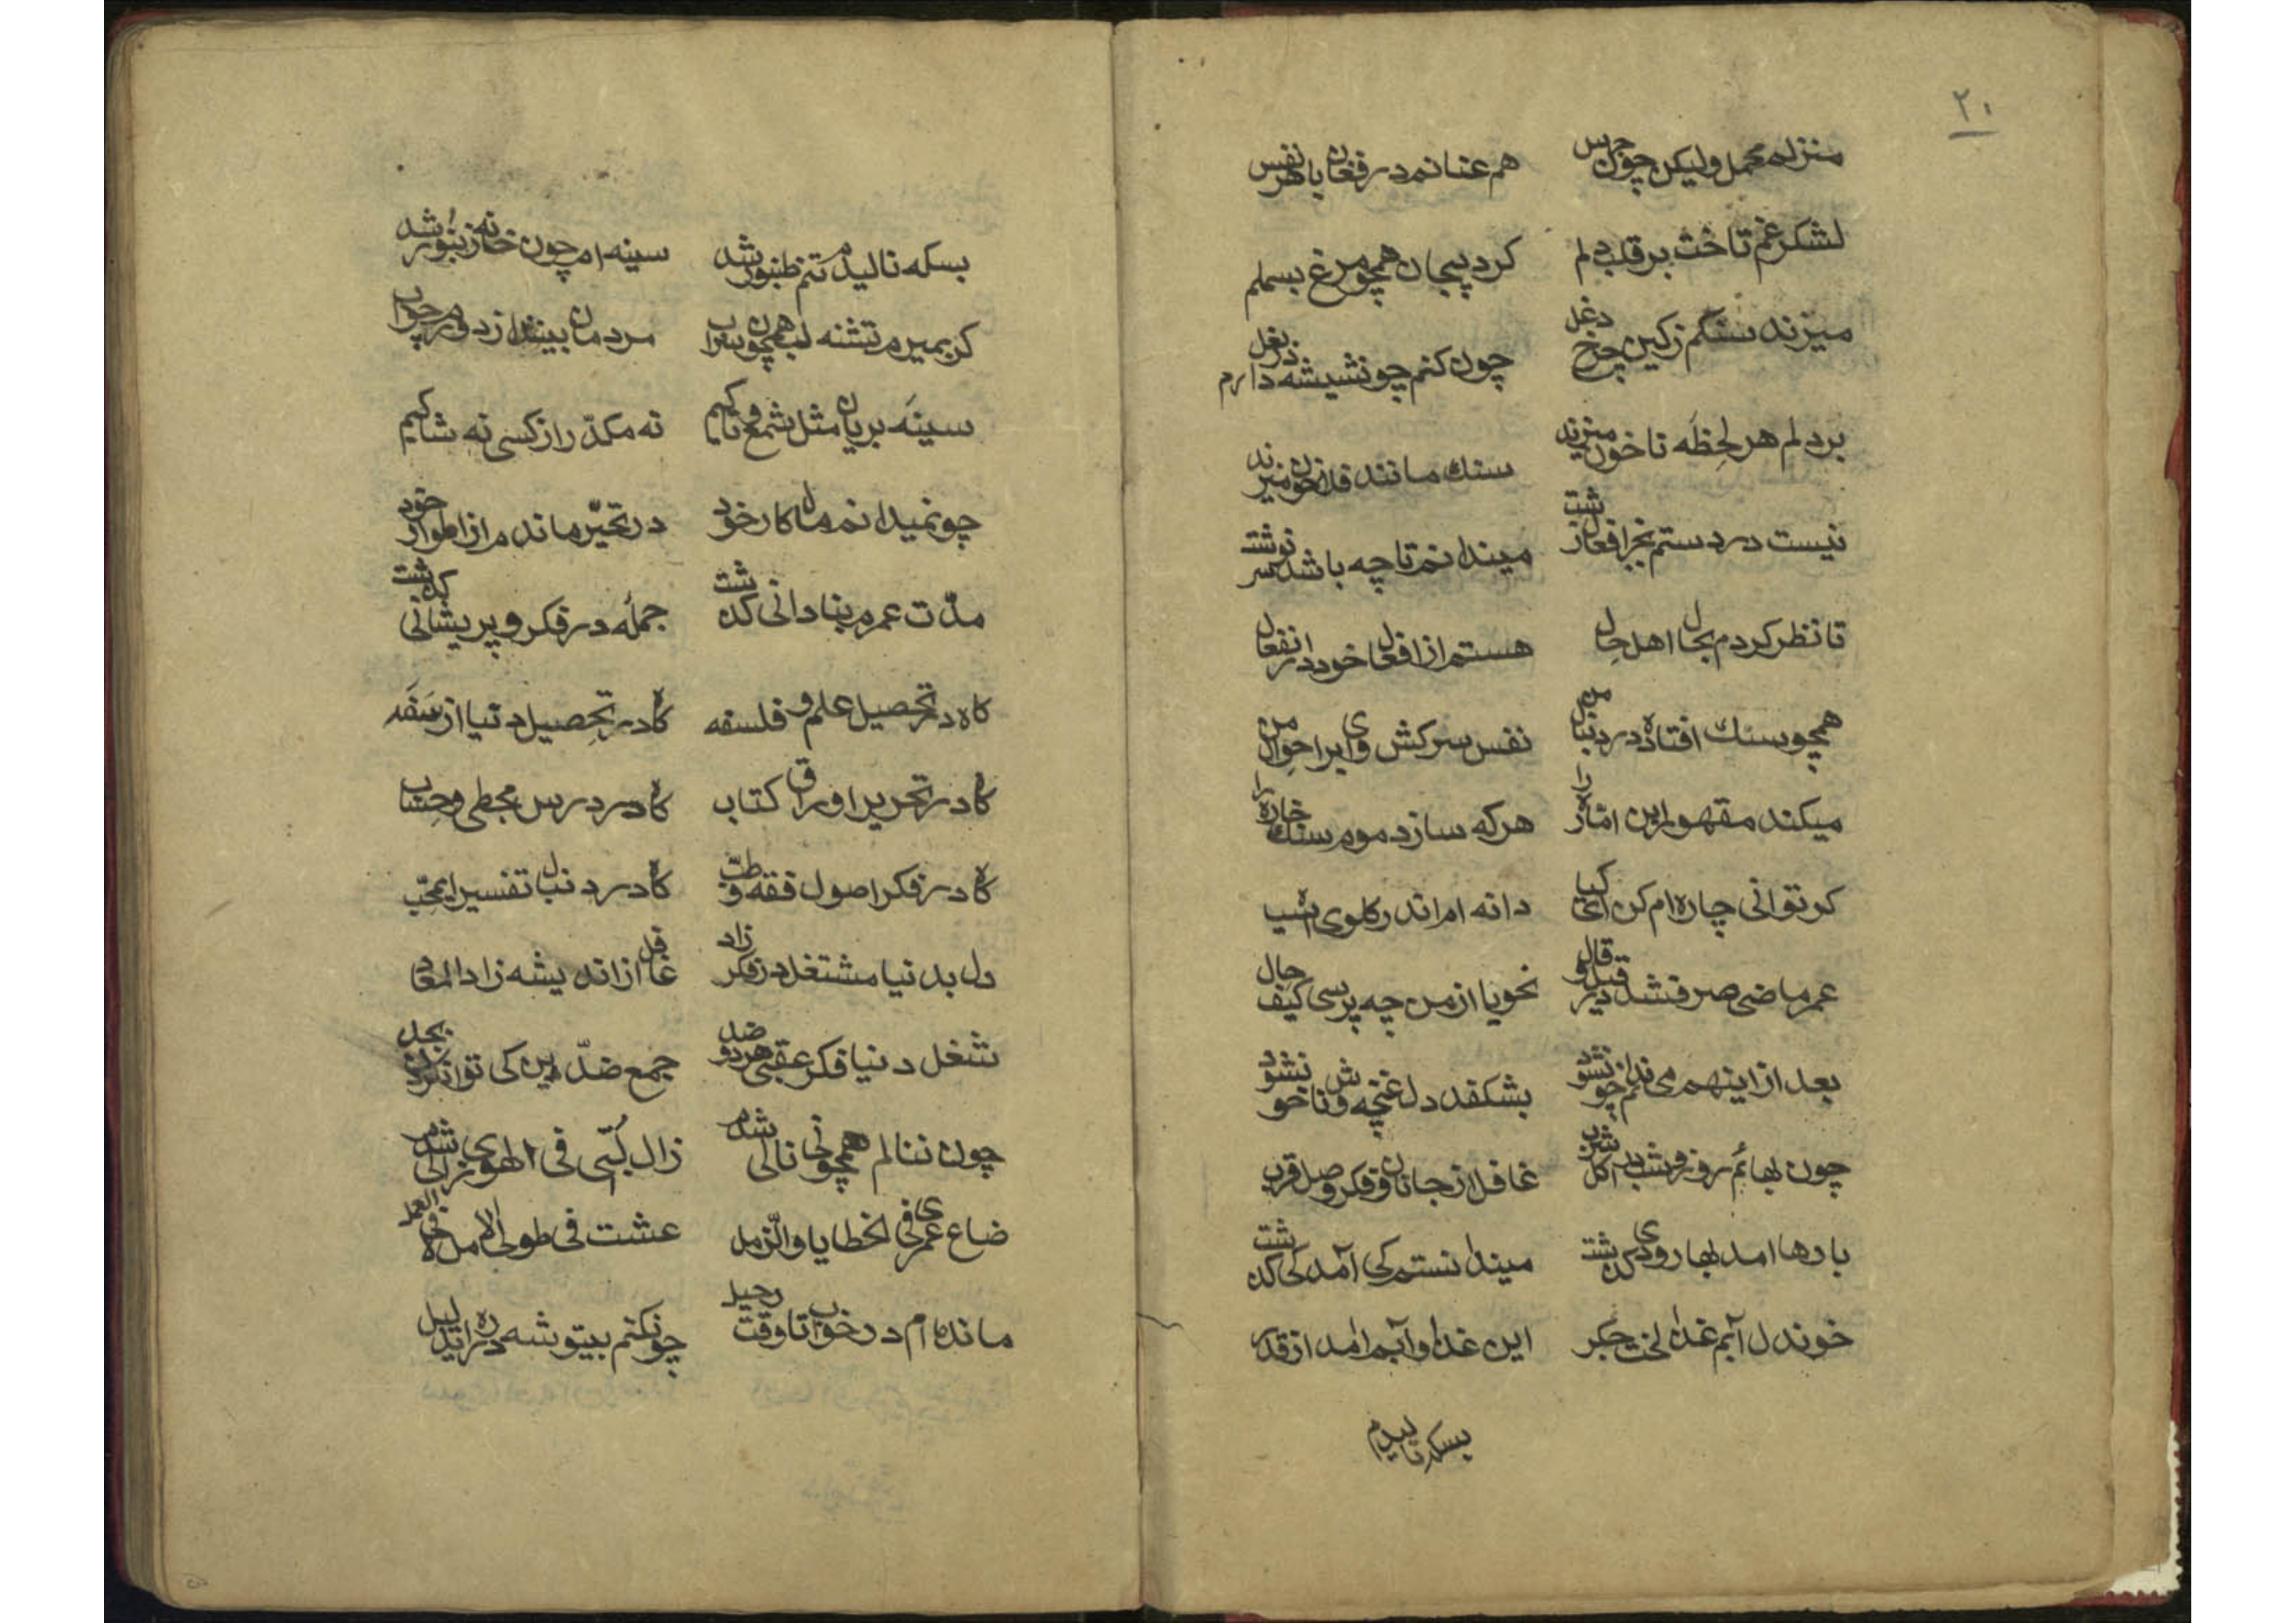 ٢٠
منزلم محمل وليكن چون جرس هم عنانم در فغان با هر نفس
لشكر غم تاخت بر قلب دلم كرد پيچان همچو مرغ بسملم
ميزند سنگم زكين چرخ دغل چون كنم چو نشيشه دارم در بغل
بر دلم هر لحظه ناخون ميزند سنك مانند فلاخون ميزند
نيست در دستم بجز افعال زشت ميندانم تا چه باشد سر نوشت
تا نظر كردم بحال اهل حال هستم از افعال خود در انفعال
همچو سنك افتاده در دنبال من نفس سركش واى بر احوال من
ميكند مقهور اين اماره را هركه سازد موم سنك خاره را
كر توانى چاره ام كن اى كيا دانه ام اندر كلوى آسيا
عمر ماضى صرف شد در قيل و قال نحويا از من چه پرسى كيف حال
بعد ازاينهم مى ندانم چو نشود بشكفد دل غنچه وش ناخو نشود
چون بهائم روز و شب در اكل و شرب غافل از جانان و فكر وصل و قرب
بارها امد بهار و دى كذشت ميندانستم كى آمد كى كذشت
خوندل آبم غذا لخت جكر اين غذا و آبم امد از قدر
بسكه ناليدم
بسكه ناليدم تنم طنبور شد سينه ام چون خانه زنبور شد
كر بميرم تشنه لب همچون سراب مردمان بينند از دورم چو آب
سينه بريان مثل شمع و ناكيم نه مكدّر از كسى نه شاكيم
چو نميدانم مآل كار خود در تحيّر مانده م از اطوار خود
مدّت عمرم بنادانى كذشت جمله در فكر و پريشانى كذشت
كاه در تحصيل علم و فلسفه كاه در تحصيل دنيا از سفه
كاه در تحرير اوراق كتاب كاه در درس مجطى و حساب
كاه در فكر اصول فقه و طبّ كاه در دنبال تفسير ايمحبّ
دل بدنيا مشتغل در فكر زاد غافل از انديشه زاد المعاد
شغل دنيا فكر عقبى هر دو ضد جمع ضدّين كى توان كردن بجد
چون ننالم همچو نى نالى شدم زال لُبّى فى الهوى زالى شدم
ضاع عمرى فى الخطايا والزّلل عشت فى طول الامل خذ فى العمل
مانده ام در خواب تا وقت رحيل چو نكنم بيتوشه در ره ايدليل